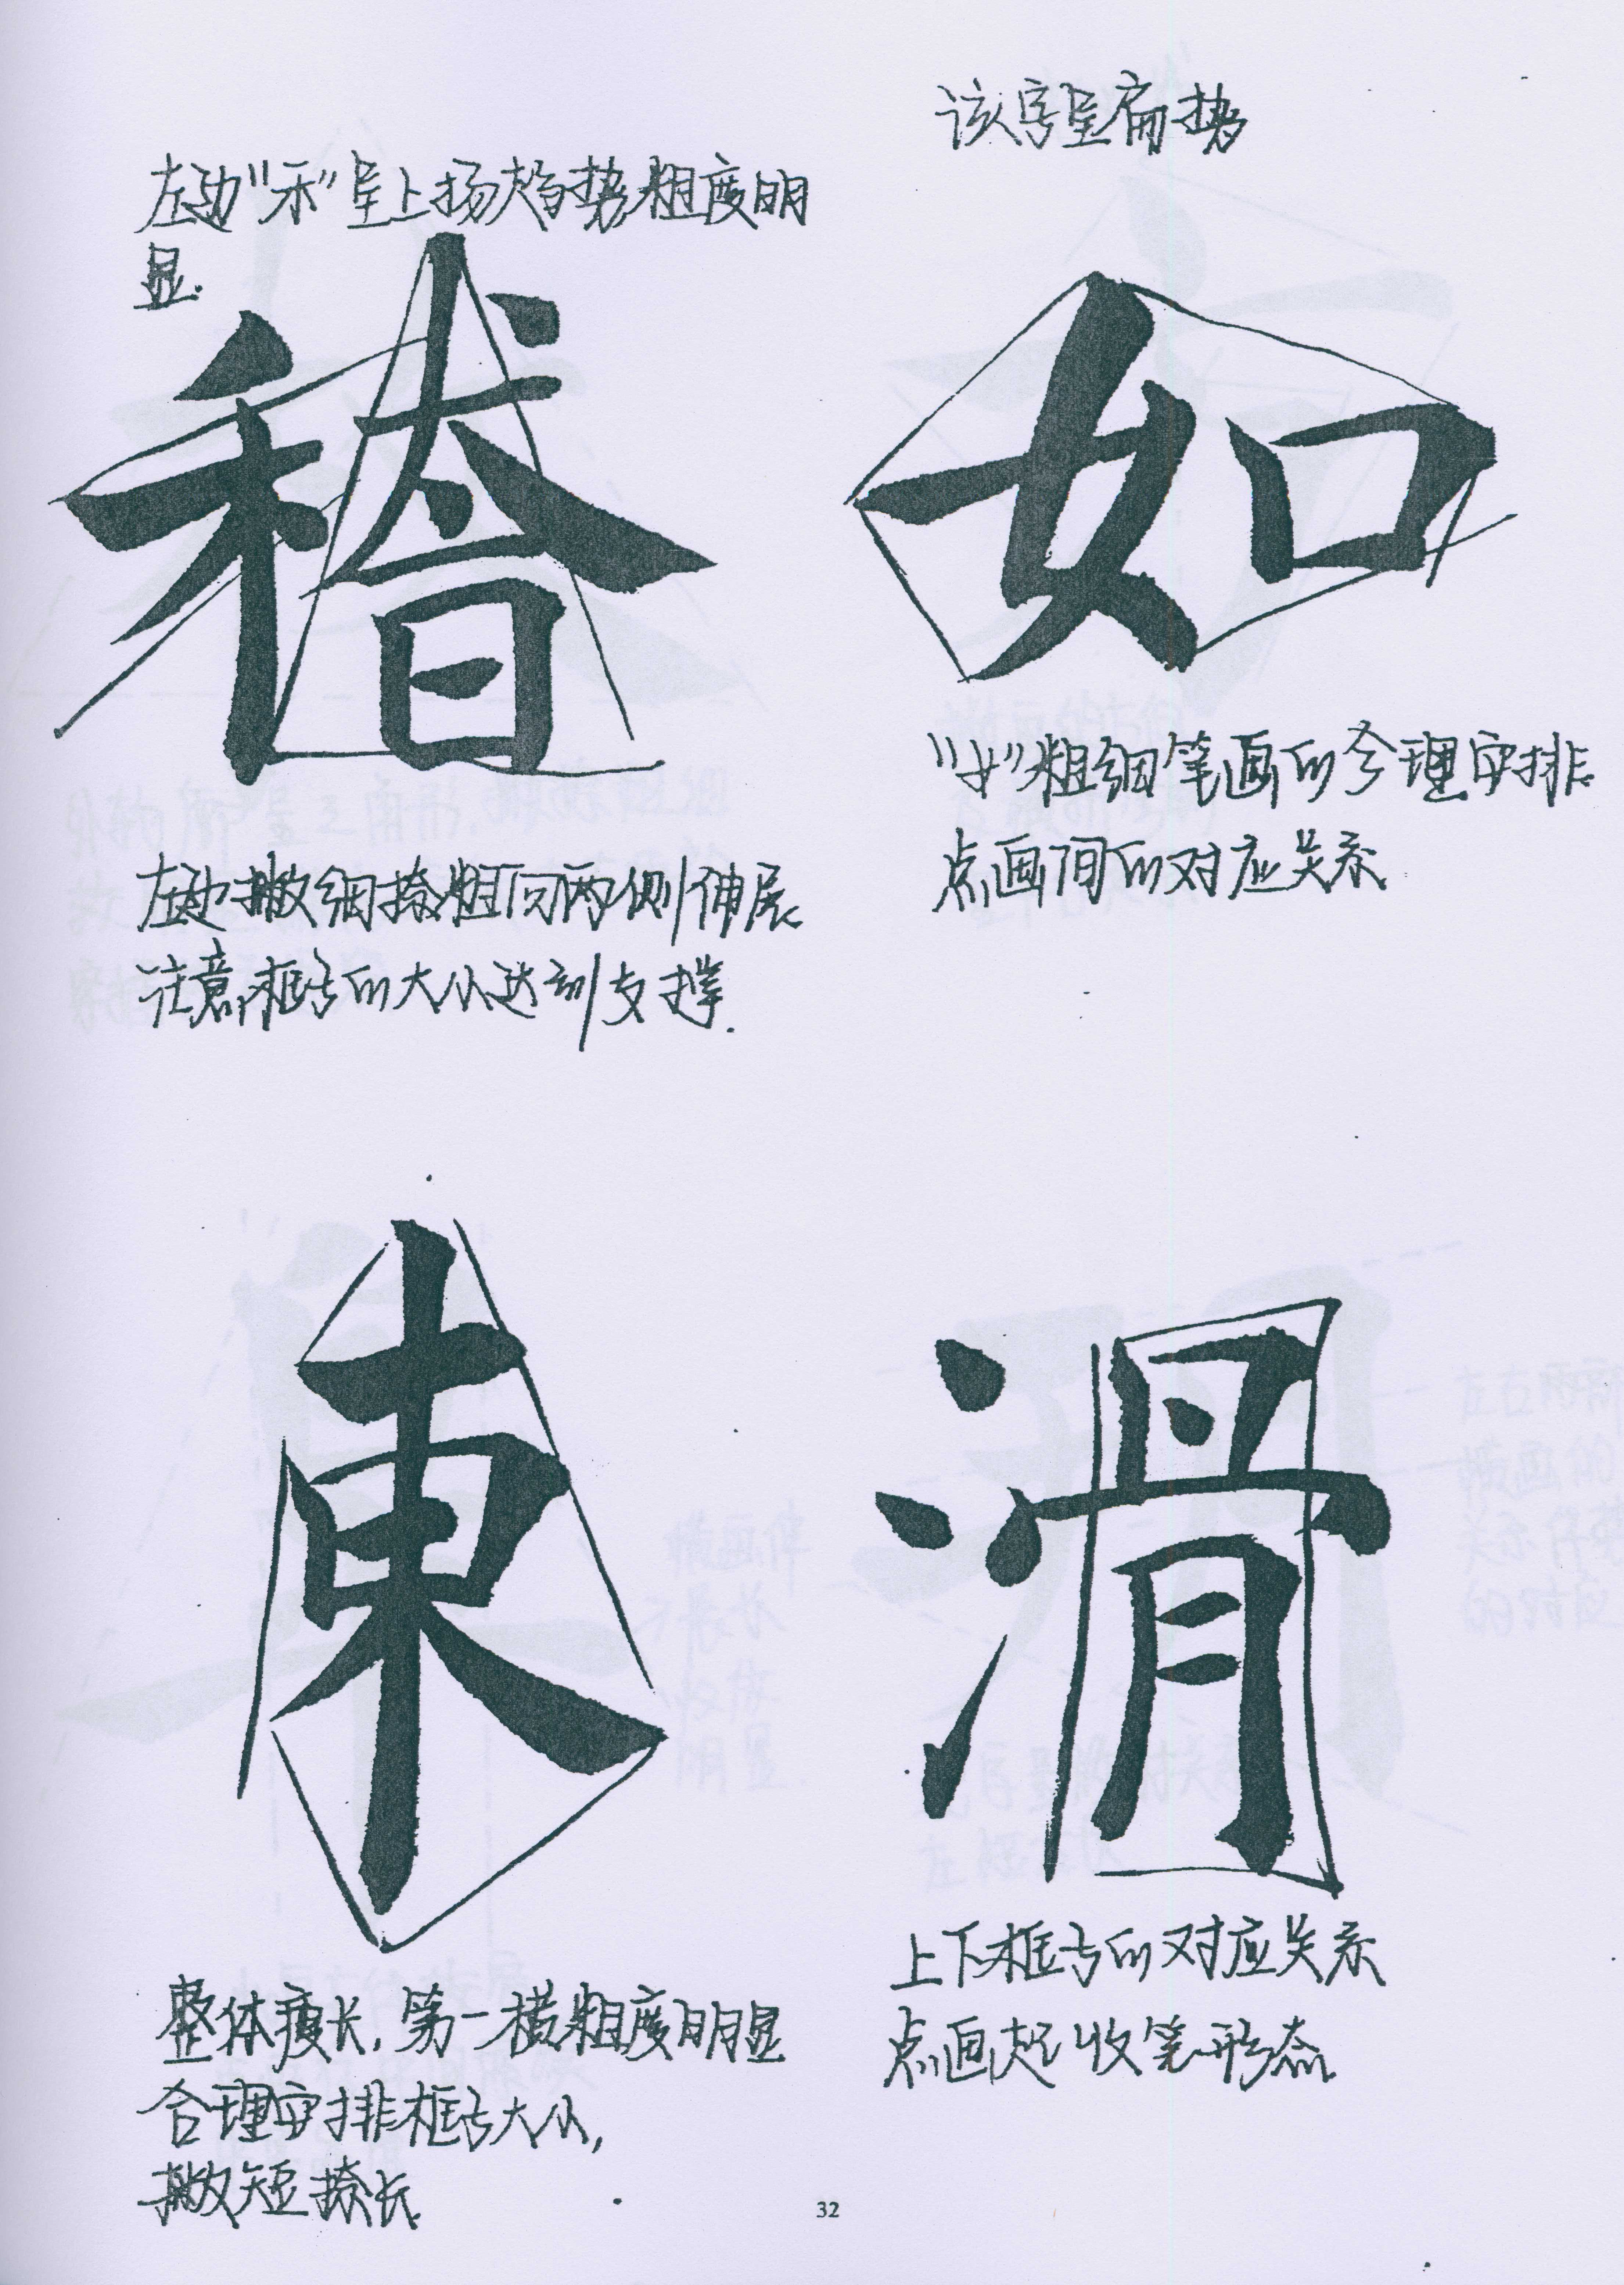 左边“禾”呈上扬趋势粗度明
显.
稽
左边撇细捺粗向两侧伸展
注意框与的大小达到支撑.
该字呈扁势
如
“女”粗细笔画的合理安排
点画间的对应关系
東
整体瘦长,第一横粗度明显
合理安排框与大小,
撇短捺长
滑
上下框与的对应关系
点画起收笔形态
32